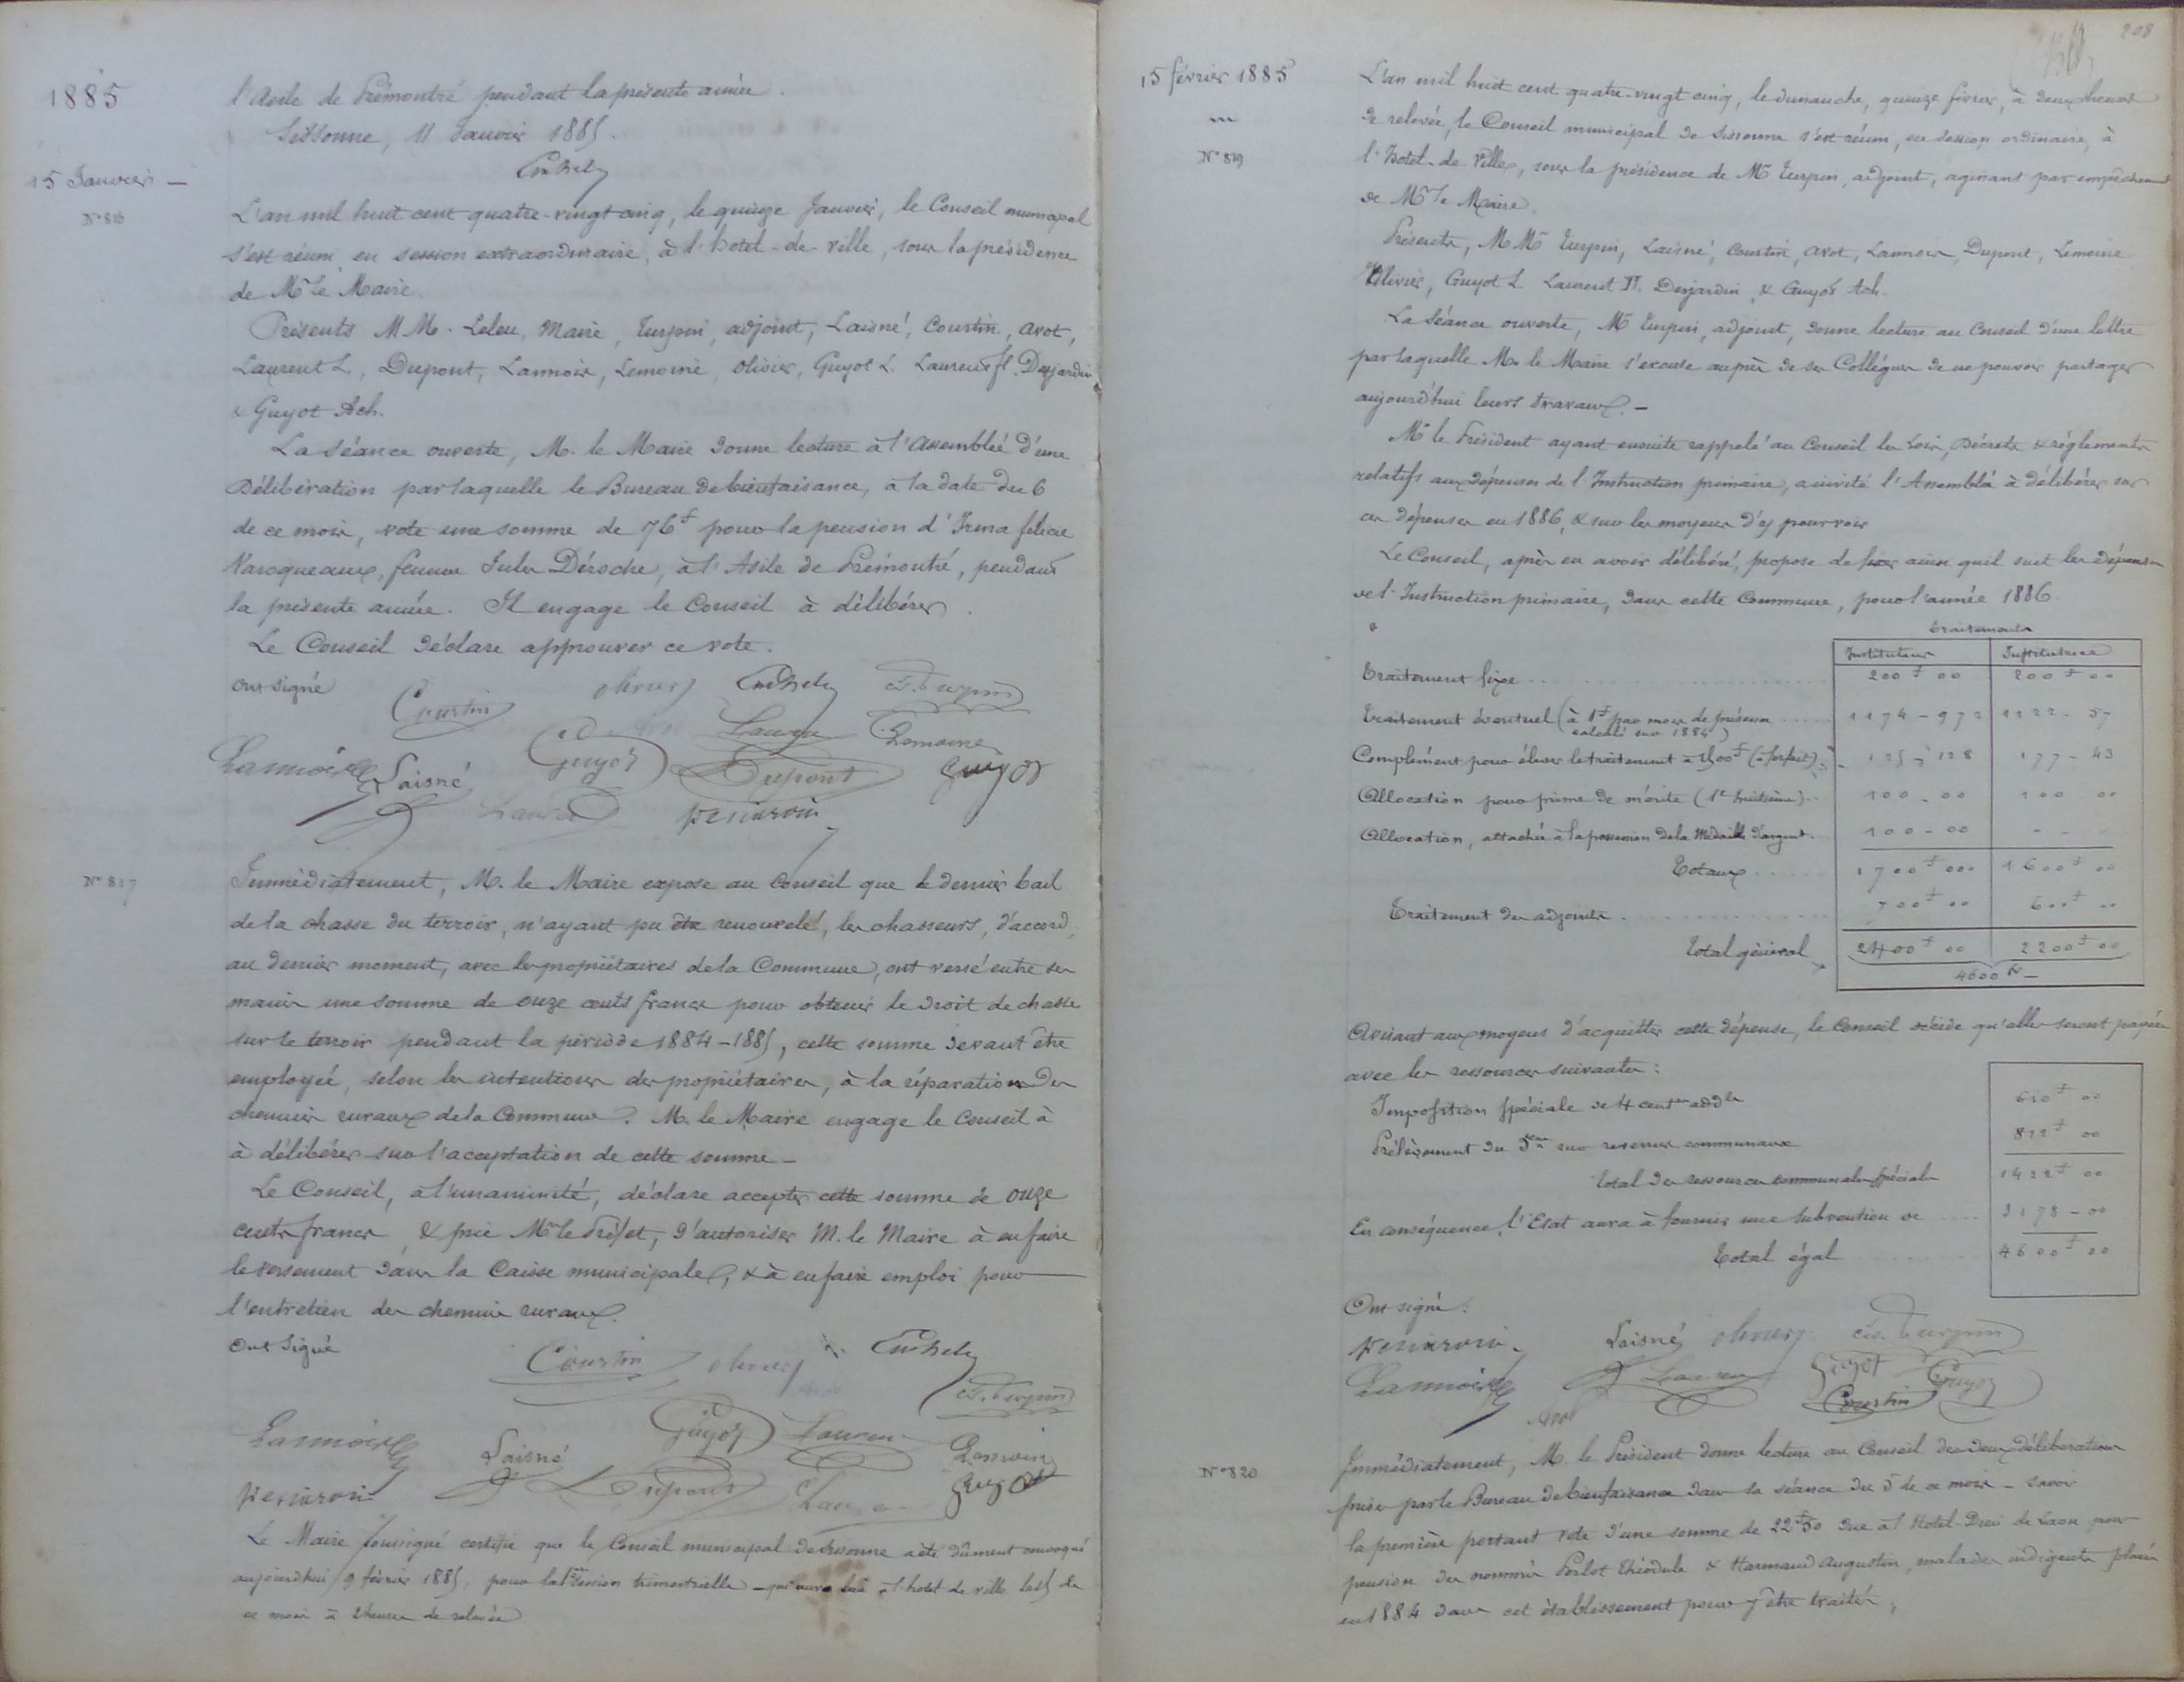 1885
l'Asile de Prémontré pendant la présente année.
Sissonne, 11 Janvier 1885.
15 Janvier —
N° 816
L'an mil huit cent quatre-vingt cinq, le quinze Janvier, le Conseil municipal
s'est réuni en session extraordinaire, à l'hotel-de-ville, sous la présidence
de Mr le Maire.
Présents MM. Leleu, Maire, Turpin, adjoint, Laisné, Courtin, Avot,
Laurent L., Dupont, Lannois, Lemoine, Olivier, Guyot L. Laurent fl. Desjardin
& Guyot Ach.
La Séance ouverte, M. le Maire donne lecture à l'Assemblée d'une
Délibération par laquelle le Bureau de bienfaisance, à la date du 6
de ce mois, vote une somme de 76f pour la pension d'Irma félicie
femme Jules Déroche, à l'Asile de Prémontré, pendant
la présente année. Il engage le Conseil à délibérer.
Le Conseil déclare approuver ce vote.
Ont signé
Courtin
Olivier
Turpin
Laurent
Lemoine
Lannois
Laisné
Guyot
Dupont
Guyot
Laurent
N° 817
Immédiatement, M. le Maire expose au Conseil que le dernier bail
de la chasse du terroir, n'ayant pu être renouvelé, les chasseurs, d'accord,
au dernier moment, avec les propriétaires de la Commune, ont versé entre ses
mains une somme de onze cents francs pour obtenir le droit de chasse
sur le terroir pendant la période 1884-1885, cette somme devant être
employée, selon les intentions des propriétaires, à la réparation des
chemins ruraux de la Commune. M. le Maire engage le Conseil à
à délibérer sur l'acceptation de cette somme —
Le Conseil, à l'unanimité, déclare accepter cette somme de onze
cents francs & prie Mr le Préfet, d'autoriser M. le Maire à en faire
le versement dans la Caisse municipale, & à en faire emploi pour
l'entretien des chemins ruraux.
Ont signé
Courtin
Olivier
Turpin
Lannois
Laisné
Guyot
Laurent
Lemoine
Dupont
Guyot
Le Maire soussigné certifie que le Conseil municipal de Sissonne a été dûment convoqué
aujourd'hui 9 février 1885, pour la 1ère session trimestrielle — qui aura lieu à l'hotel de ville le 15 de
ce mois à 2 heures de relevée
208
15 février 1885
N° 819
L'an mil huit cent quatre-vingt cinq, le dimanche, quinze février, à deux heures
de relevée, le Conseil municipal de Sissonne s'est réuni, en session ordinaire, à
l'hotel-de-Ville, sous la présidence de Mr Turpin, adjoint, agissant par empêchement
de Mr le Maire.
Présents, MMrs Turpin, Laisné, Courtin, Avot, Lannois, Dupont, Lemoine
Olivier, Guyot L. Laurent fl. Desjardin, & Guyot Ach.
La Séance ouverte, Mr Turpin, adjoint, donne lecture au Conseil d'une lettre
par laquelle M. le Maire s'excuse auprès de ses Collègues de ne pouvoir partager
aujourd'hui leurs travaux. —
Mr le Président ayant ensuite rappelé au Conseil les Lois, Décrets & règlements
relatifs aux dépenses de l'Instruction primaire, a invité l'Assemblée à délibérer sur
ces dépenses en 1886, & sur les moyens d'y pourvoir
Le Conseil, après en avoir délibéré, propose de fixer ainsi qu'il suit les dépenses
de l'Instruction primaire, dans cette Commune, pour l'année 1886.
Traitements
Instituteur Institutrice
Traitement fixe 200f 00 200f 00
Traitement éventuel (à 1f par mois de présence 1174 - 972 1122 - 57
calculé sur 1884)
Complément pour élever le traitement à 1500f (à forfait) 125 - 128 177 - 43
Allocation pour prime de mérite 100 - 00 100 00
Allocation, attachée à la possession de la Médaille d'argent 100 - 00 - -
Totaux 1700f 000 1600f 00
Traitement des adjoints 700f 00 600f 00
Total général 2400f 00 2200f 00
4600fr —
Avisant aux moyens d'acquitter cette dépense, le Conseil décide qu'elles seront payées
avec les ressources suivantes :
Imposition spéciale de 4 centes addls 610f 00
Prélèvement du 5ème sur revenus communaux 812f 00
Total des ressources communales spéciales 1422f 00
En conséquence, l'Etat aura à fournir une Subvention de 3178 - 00
Total égal 4600f 00
Ont signé :
Laisné
Olivier
Turpin
Lannois
Laurent
Guyot
Guyot
Courtin
Avot
N° 820
Immédiatement, M. le Président donne lecture au Conseil des deux délibérations
prises par le Bureau de bienfaisance dans sa séance du 5 de ce mois — savoir
la première portant vote d'une somme de 22f50 due à l'Hotel-Dieu de Laon pour
pension des nommés Théodule & Harmand Augustin, malades indigents placés
en 1884 dans cet établissement pour y être traités,